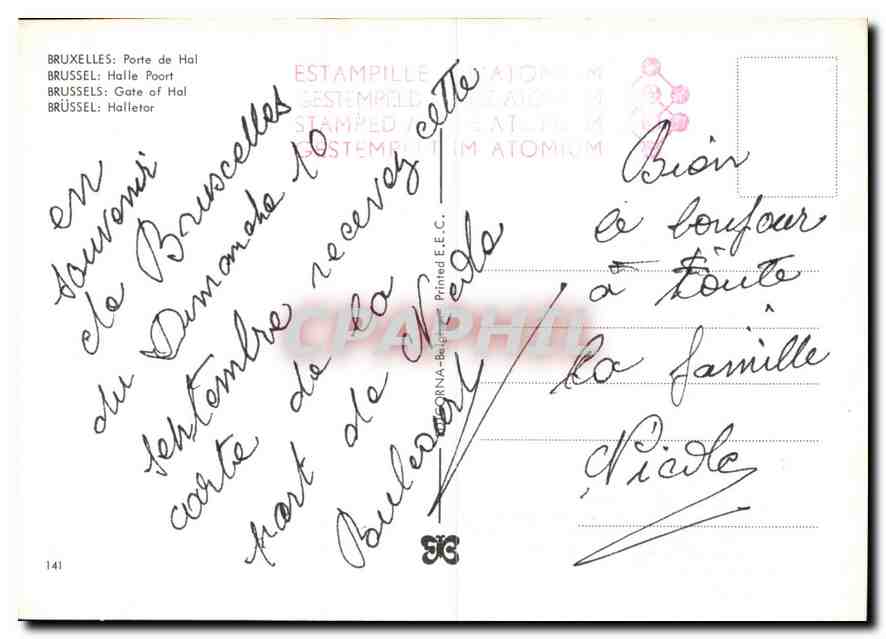 BRUXELLES: Porte de Hal
BRUSSEL: Halle Poort
BRUSSELS: Gate of Hal
BRÜSSEL: Halletor
ESTAMPILLE ATOMIUM
GESTEMPELD ATOMIUM
STAMPED ATOMIUM
GESTEMPELT IM ATOMIUM
en
souvenir
de Bruscelles
du Dimanche 10
septembre recevez cette
carte de la
part de Nicole
Boulevart
Printed E.E.C.
CPAPHIL
Bien
le bonjour
à toute
la famille
Nicole
141